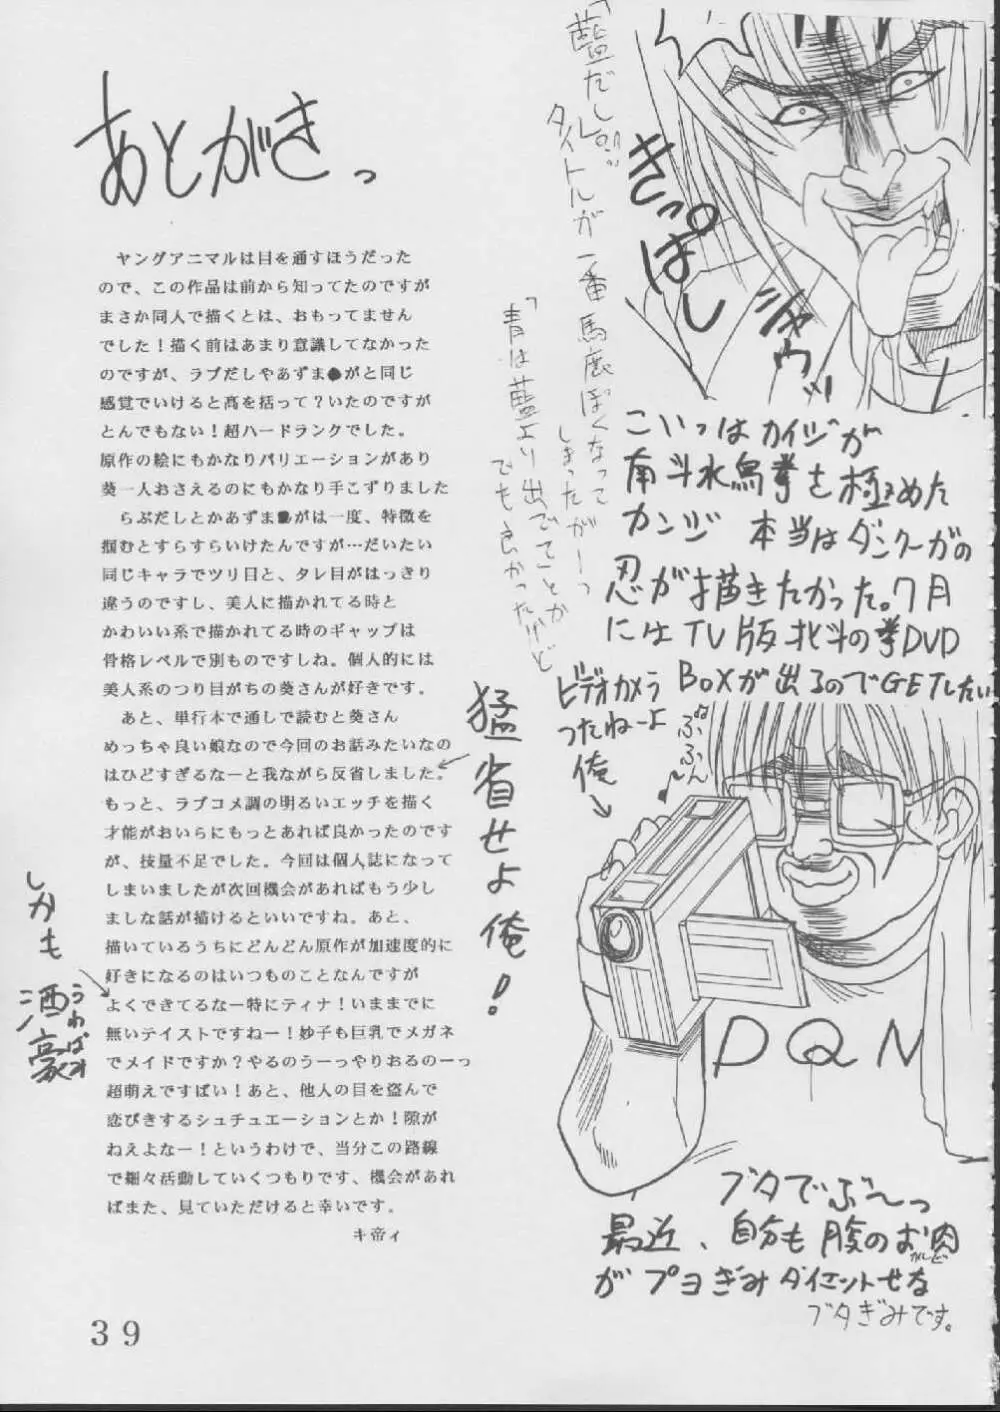 あとがきっ
ヤングアニマルは目を通すほうだった
ので、この作品は前から知ってたのですが
まさか同人で描くとは、おもってません
でした！描く前はあまり意識してなかった
のですが、ラブだしやあずま●がと同じ
感覚でいけると高を括って？いたのですが
とんでもない！超ハードランクでした。
原作の絵にもかなりバリエーションがあり
葵一人おさえるのにもかなり手こずりました
らぶだしとかあずま●がは一度、特徴を
掴むとすらすらいけたんですが…だいたい
同じキャラでツリ目と、タレ目がはっきり
違うのですし、美人に描かれてる時と
かわいい系で描かれてる時のギャップは
骨格レベルで別ものですしね。個人的には
美人系のつり目がちの葵さんが好きです。
あと、単行本で通しで読むと葵さん
めっちゃ良い娘なので今回のお話みたいなの
はひどすぎるなーと我ながら反省しました。
もっと、ラブコメ調の明るいエッチを描く
才能がおいらにもっとあれば良かったのです
が、技量不足でした。今回は個人誌になって
しまいましたが次回機会があればもう少し
ましな話が描けるといいですね。あと、
描いているうちにどんどん原作が加速度的に
好きになるのはいつものことなんですが
よくできてるなー特にティナ！いままでに
無いテイストですねー！妙子も巨乳でメガネ
でメイドですか？やるのうーっやりおるのーっ
超萌えですばい！あと、他人の目を盗んで
恋びきするシュチュエーションとか！隙が
ねえよなー！というわけで、当分この路線
で細々活動していくつもりです、機会があれ
ばまた、見ていただけると幸いです。
キ帝ィ
しかも
酒豪
うわばみ
猛省せよ俺！
「藍だし」
タイトルが一番馬鹿ぽくなって
しまったがーっ
「青は藍より出でてとか
でも良かったけど
きっぱし
シャウッ
こいつはカイジが
南斗水鳥拳を極めた
カンジ 本当はダンクーガの
忍が描きたかった。7月
にはTV版北斗の拳DVD
BOXが出るのでGETしたい
ビデオカメラ
うつたねーよ
俺
ぶふん
DQN
ブタでぶ〜っ
最近、自分も腹のお肉
がプヨぎみダイエットせな
ブタぎみです。
39